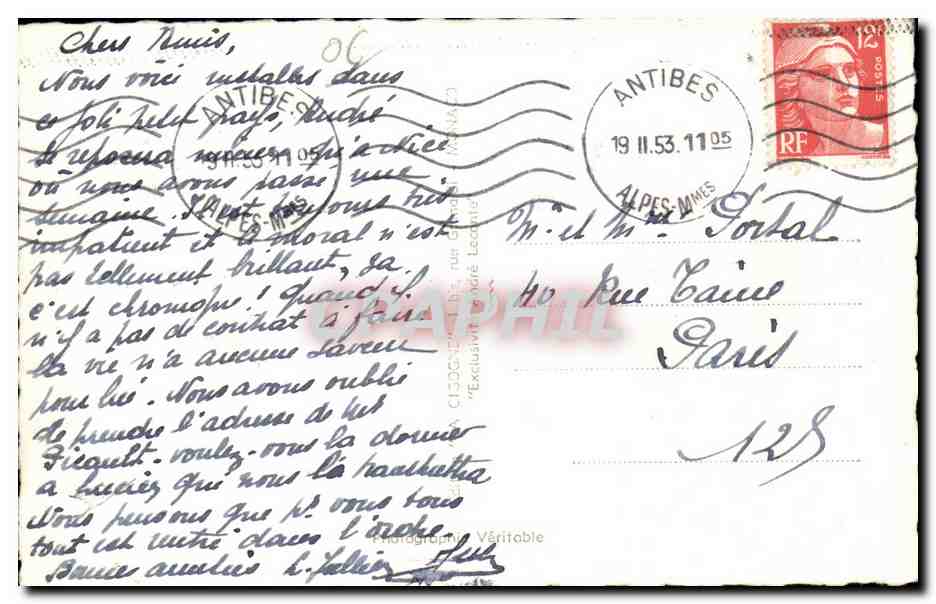 Chers Amis,
OC
Nous voici installés dans
ce joli petit pays, André
se reposera mieux qu'à Nice
où nous avons passé une
semaine. Il est toujours très
impatient et le moral n'est
pas tellement brillant, ça
c'est chronique ! Quand il
n'y a pas de contrat à faire
la vie n'a aucune saveur
pour lui. Nous avons oublié
de prendre l'adresse de
voulez-vous la donner
à Lucien qui nous la transmettra
Nous pensons que pr vous tous
tout est rentré dans l'ordre
Bonnes amitiés
ANTIBES
19 II.53. 11 05
ALPES-Mmes
ANTIBES
19 II.53. 11 05
ALPES-MMES
12F
POSTES
RF
M. et Mme Portal
40 Rue Taine
Paris
12e
LA CIGOGNE rue Grimaldi MONACO
"Exclusivité André Leconte"
Photographie Véritable
CPAPHIL